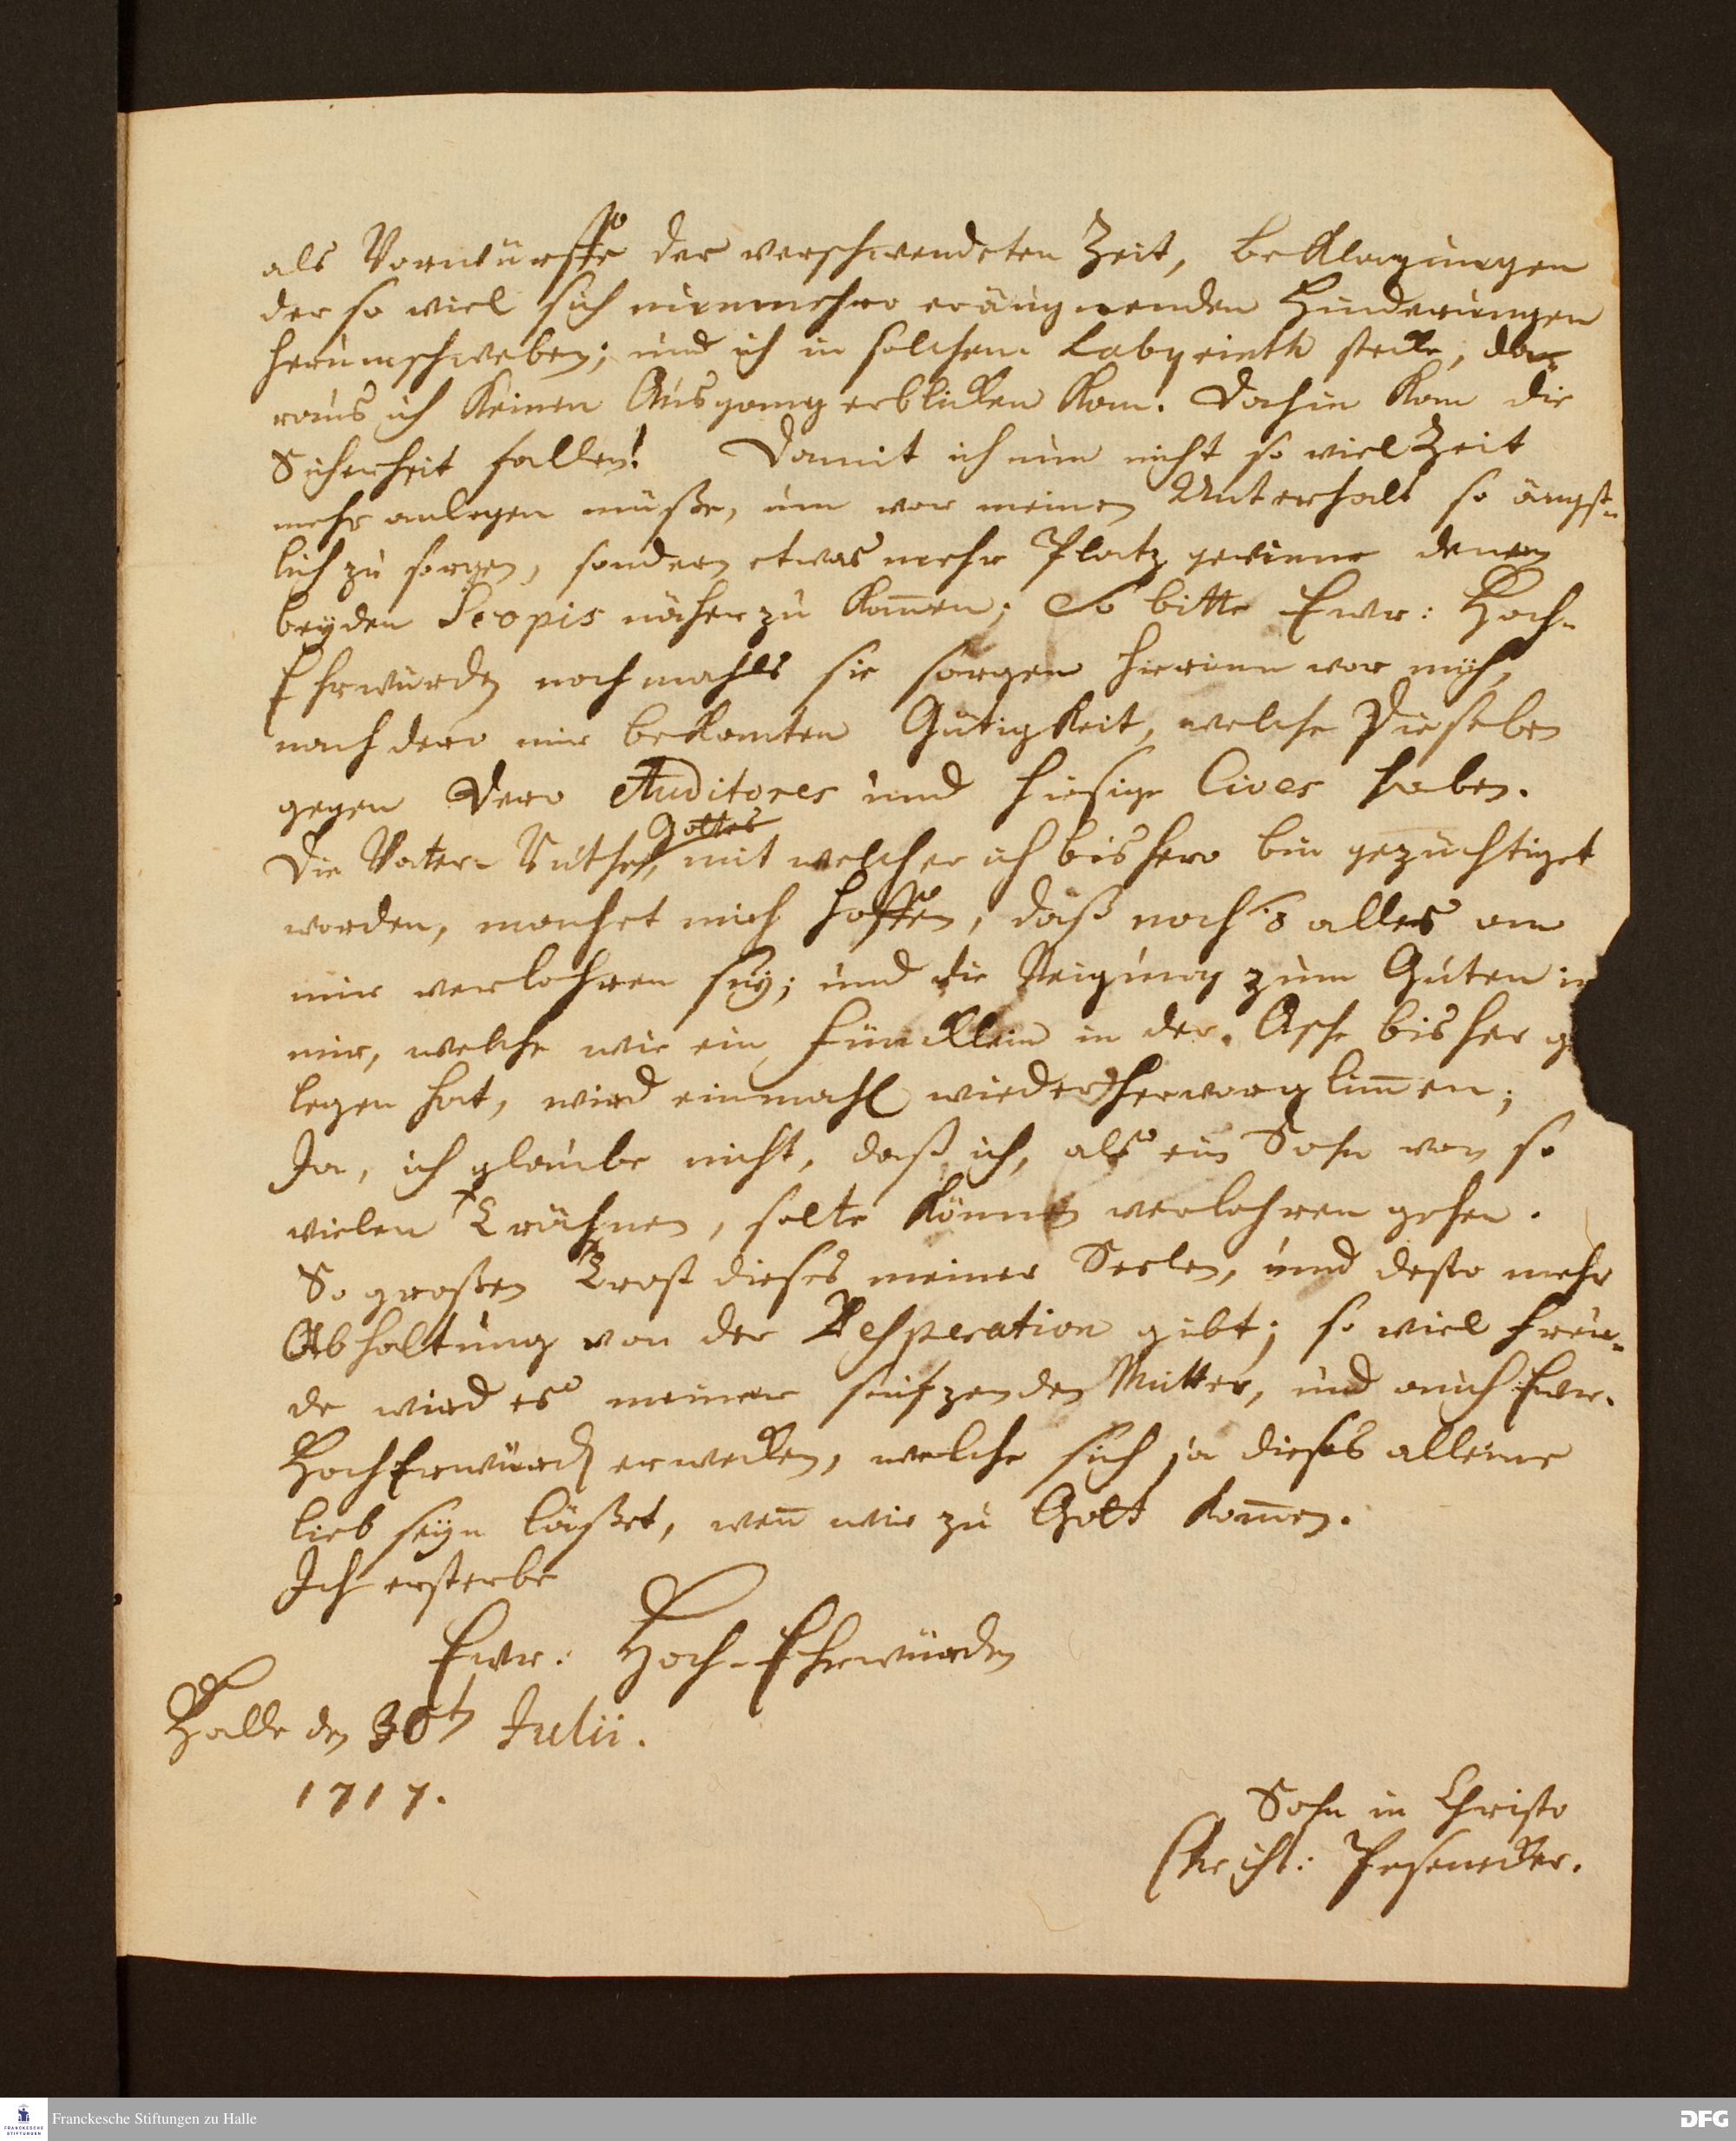 als Vorwürffe der verschwendeten Zeit, beklagungen
der so viel sich nunmehro eräugnenden Hinderungen
herumschweben; und ich in solchem Labyrinth stecke, da-
raus ich keinen Ausgang erblicken kan. Dahin kan die
Sicherheit fallen! Damit ich nun nicht so viel Zeit
mehr anlegen müße, um vor meinen Unterhalt so ängst-
lich zu sorgen, sondern etwas mehr Platz gewinne denen
beyden Scopis näher zu kom̄en; So bitte Ewr: Hoch-
Ehrwürden nochmahls sie sorgen hierinn vor mich,
nach dero mir bekanten Gütigkeit, welche Dieselben
gegen Dero Auditores und hiesige Cives haben.
Gottes
Die Vater-Ruthe, mit welcher ich bishero bin gezüchtiget
worden, machet mich hoffen, daß noch alles an
mir verlohren sey; und die Neigung zum Guten in
mir, welche wie ein Füncklein in der Asche bisher ge
legen hat, wird einmahl wieder hervorglim̄en;
Ja, ich glaube nicht, daß ich, als ein Sohn von so
vielen Trähnen, solte können verlohren gehen.
So großen Trost dieses meiner Seelen, und desto mehr
Abhaltung von der Desperation gibt; so viel Freu-
de wird es meiner seufzenden Mutter, und auch Ewr.
HochEhrwürd. erwecken, welche sich ja dieses alleine
lieb seyn läßet, wen̄ wir zu Gott kom̄en.
Ich ersterbe
Ewr: Hoch-Ehrwürden
Halle den 30ten Julii.
1717.
Sohn in Christo
Christ: Peseneker.
Franckesche Stiftungen zu Halle
FRANCKESCHE STIFTUNGEN
DFG